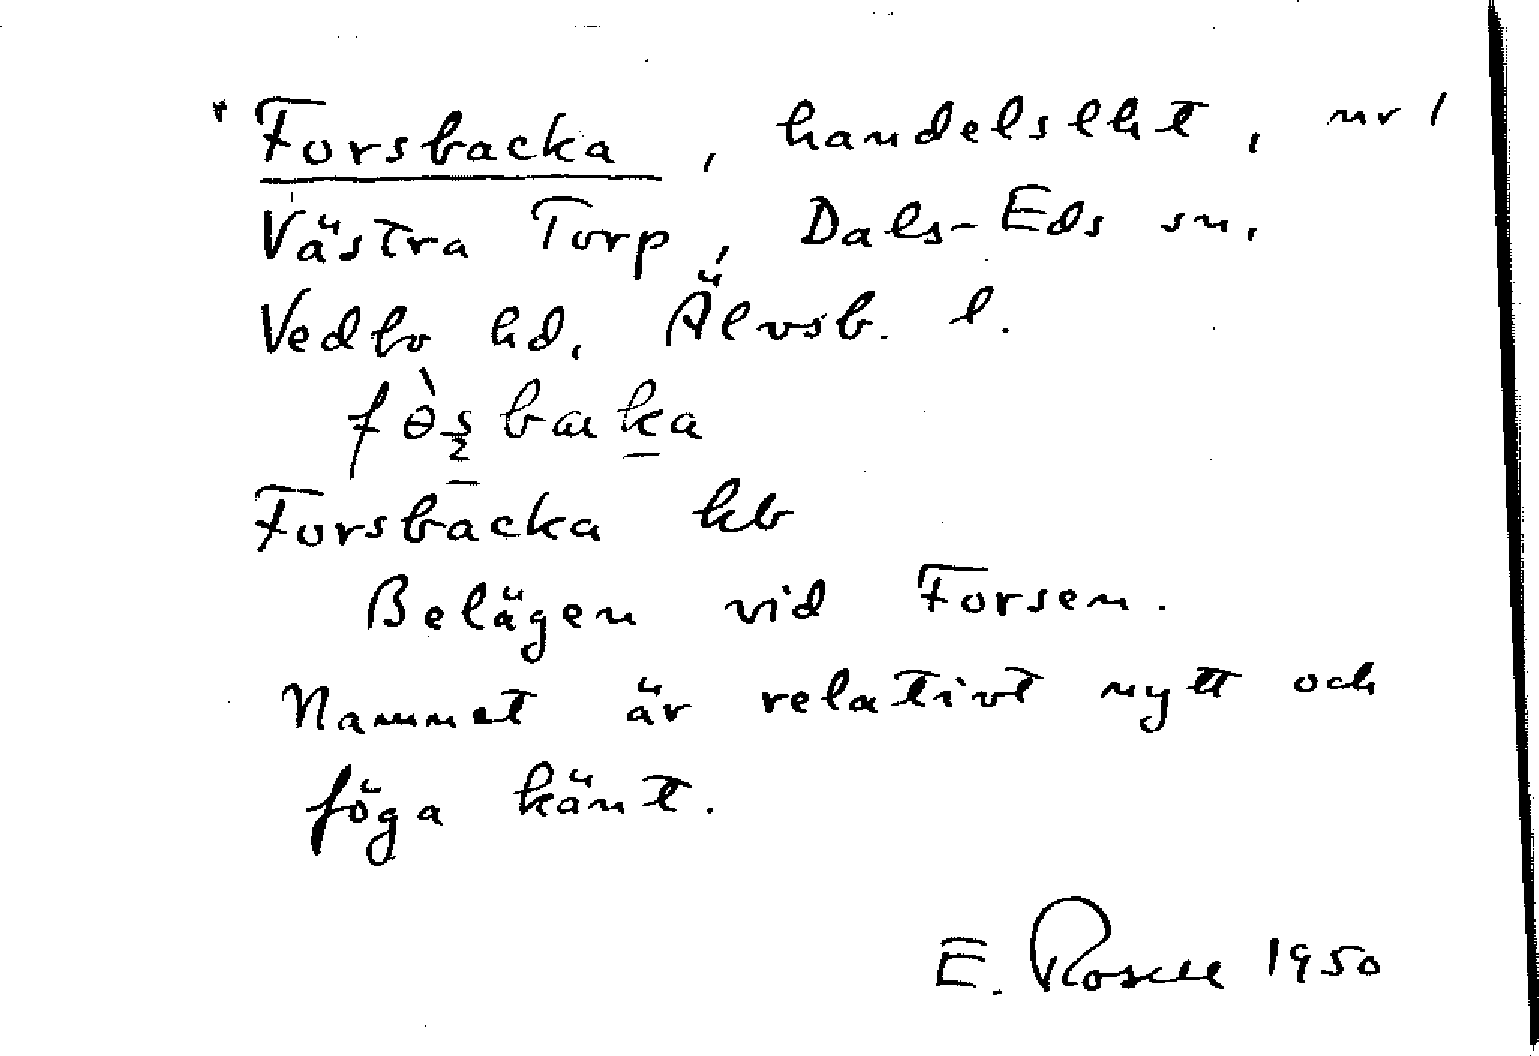 Forsbacka, handelslht, nr 1
Västra Torp, Dals-Eds sn,
Vedbo hd, Älvsb. l.
Forsbacka kb
Belägen vid Forsen.
Namnet är relativt nytt och
föga känt.
E. Rosell 1950